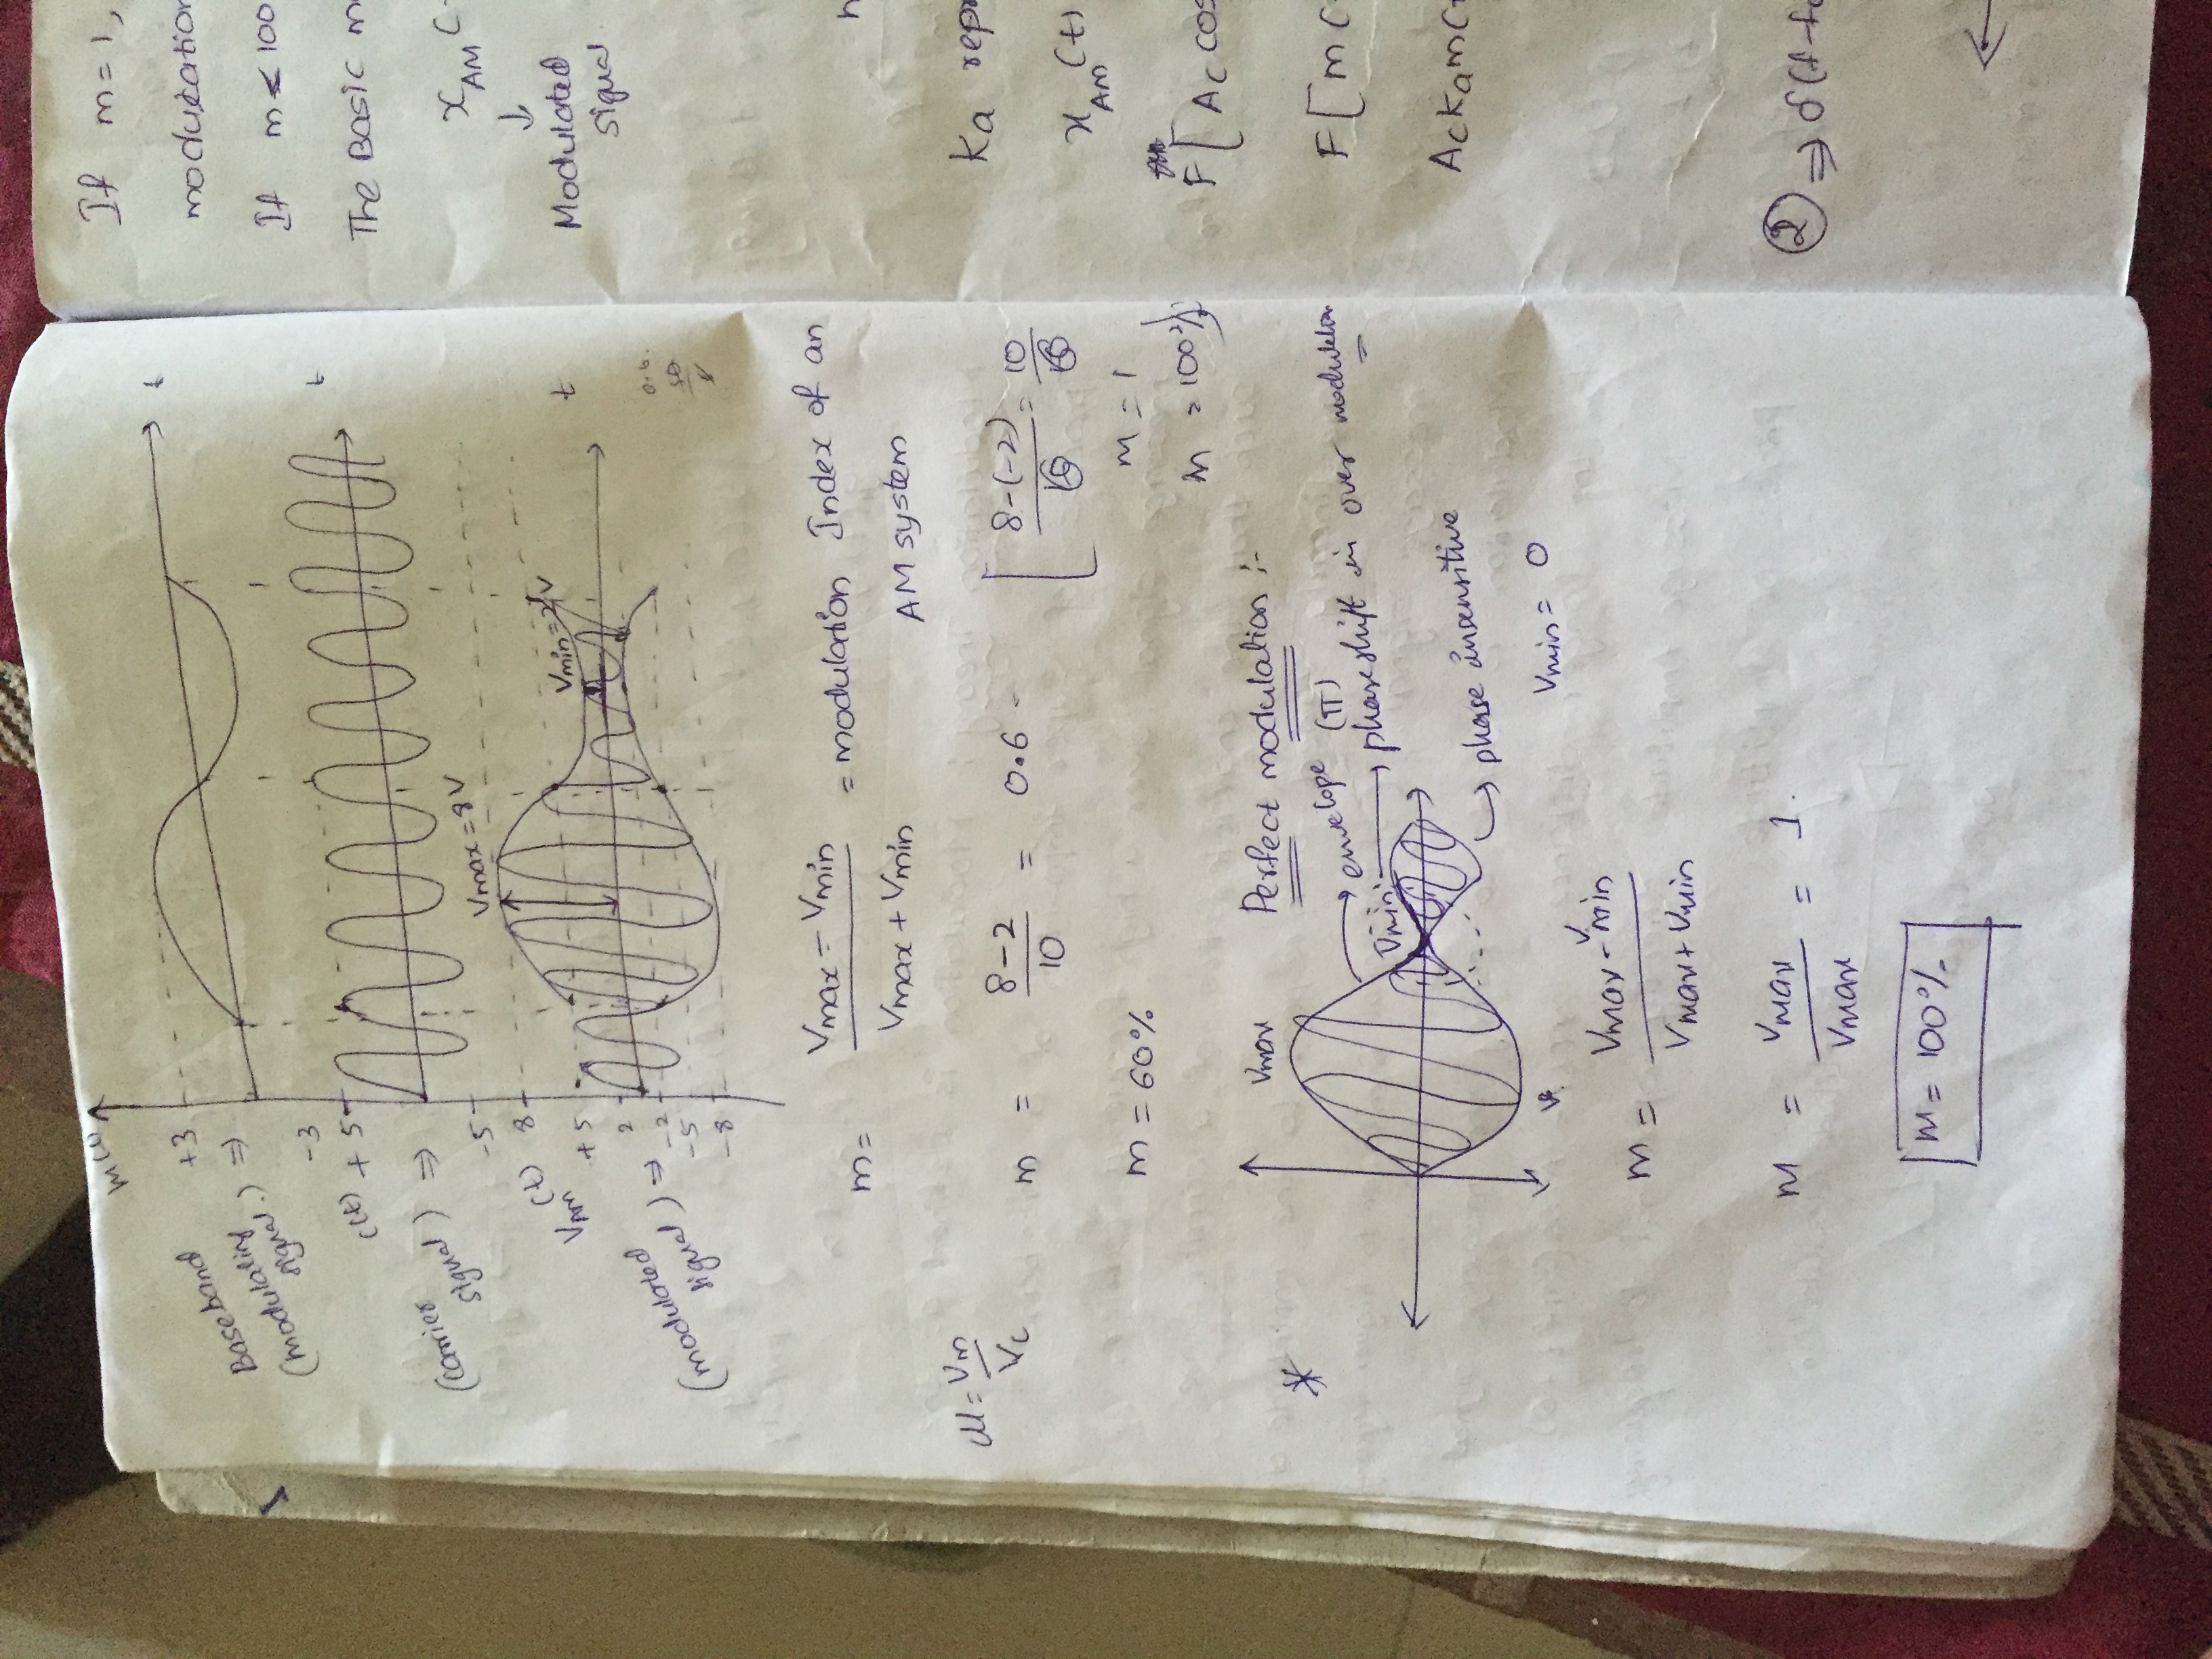 m(t)
t
+3
Baseband
(modulating
signal.) ⇒
-3
t
c(t) +5
(carrier
signal) ⇒
-5
Vmax = 8V
V_AM(t) 8
Vmin = 2V
+5
t
2
(modulated
signal) ⇒ -2
-5
-8
0.6
m = (Vmax - Vmin)/(Vmax + Vmin) = modulation Index of an
AM system
μ = Vm/Vc
m = (8-2)/10 = 0.6 - [ (8-(-2))/10 = 10/10
m = 1
m = 60%
m = 100%
* Vmax Perfect modulation :-
envelope (π)
Vmin: → phase shift in over modulation
→ phase insensitive
Vmin = 0
m = (Vmax - Vmin)/(Vmax + Vmin)
m = Vmax/Vmax = 1.
m = 100%
If m = 1,
modulation
If m < 100
The Basic m
x_AM (
↓
Modulated
signal.
Ka repr
x_AM(t)
F[Ac cos
F[m(
Ackam(
② ⇒ δ(f-fc